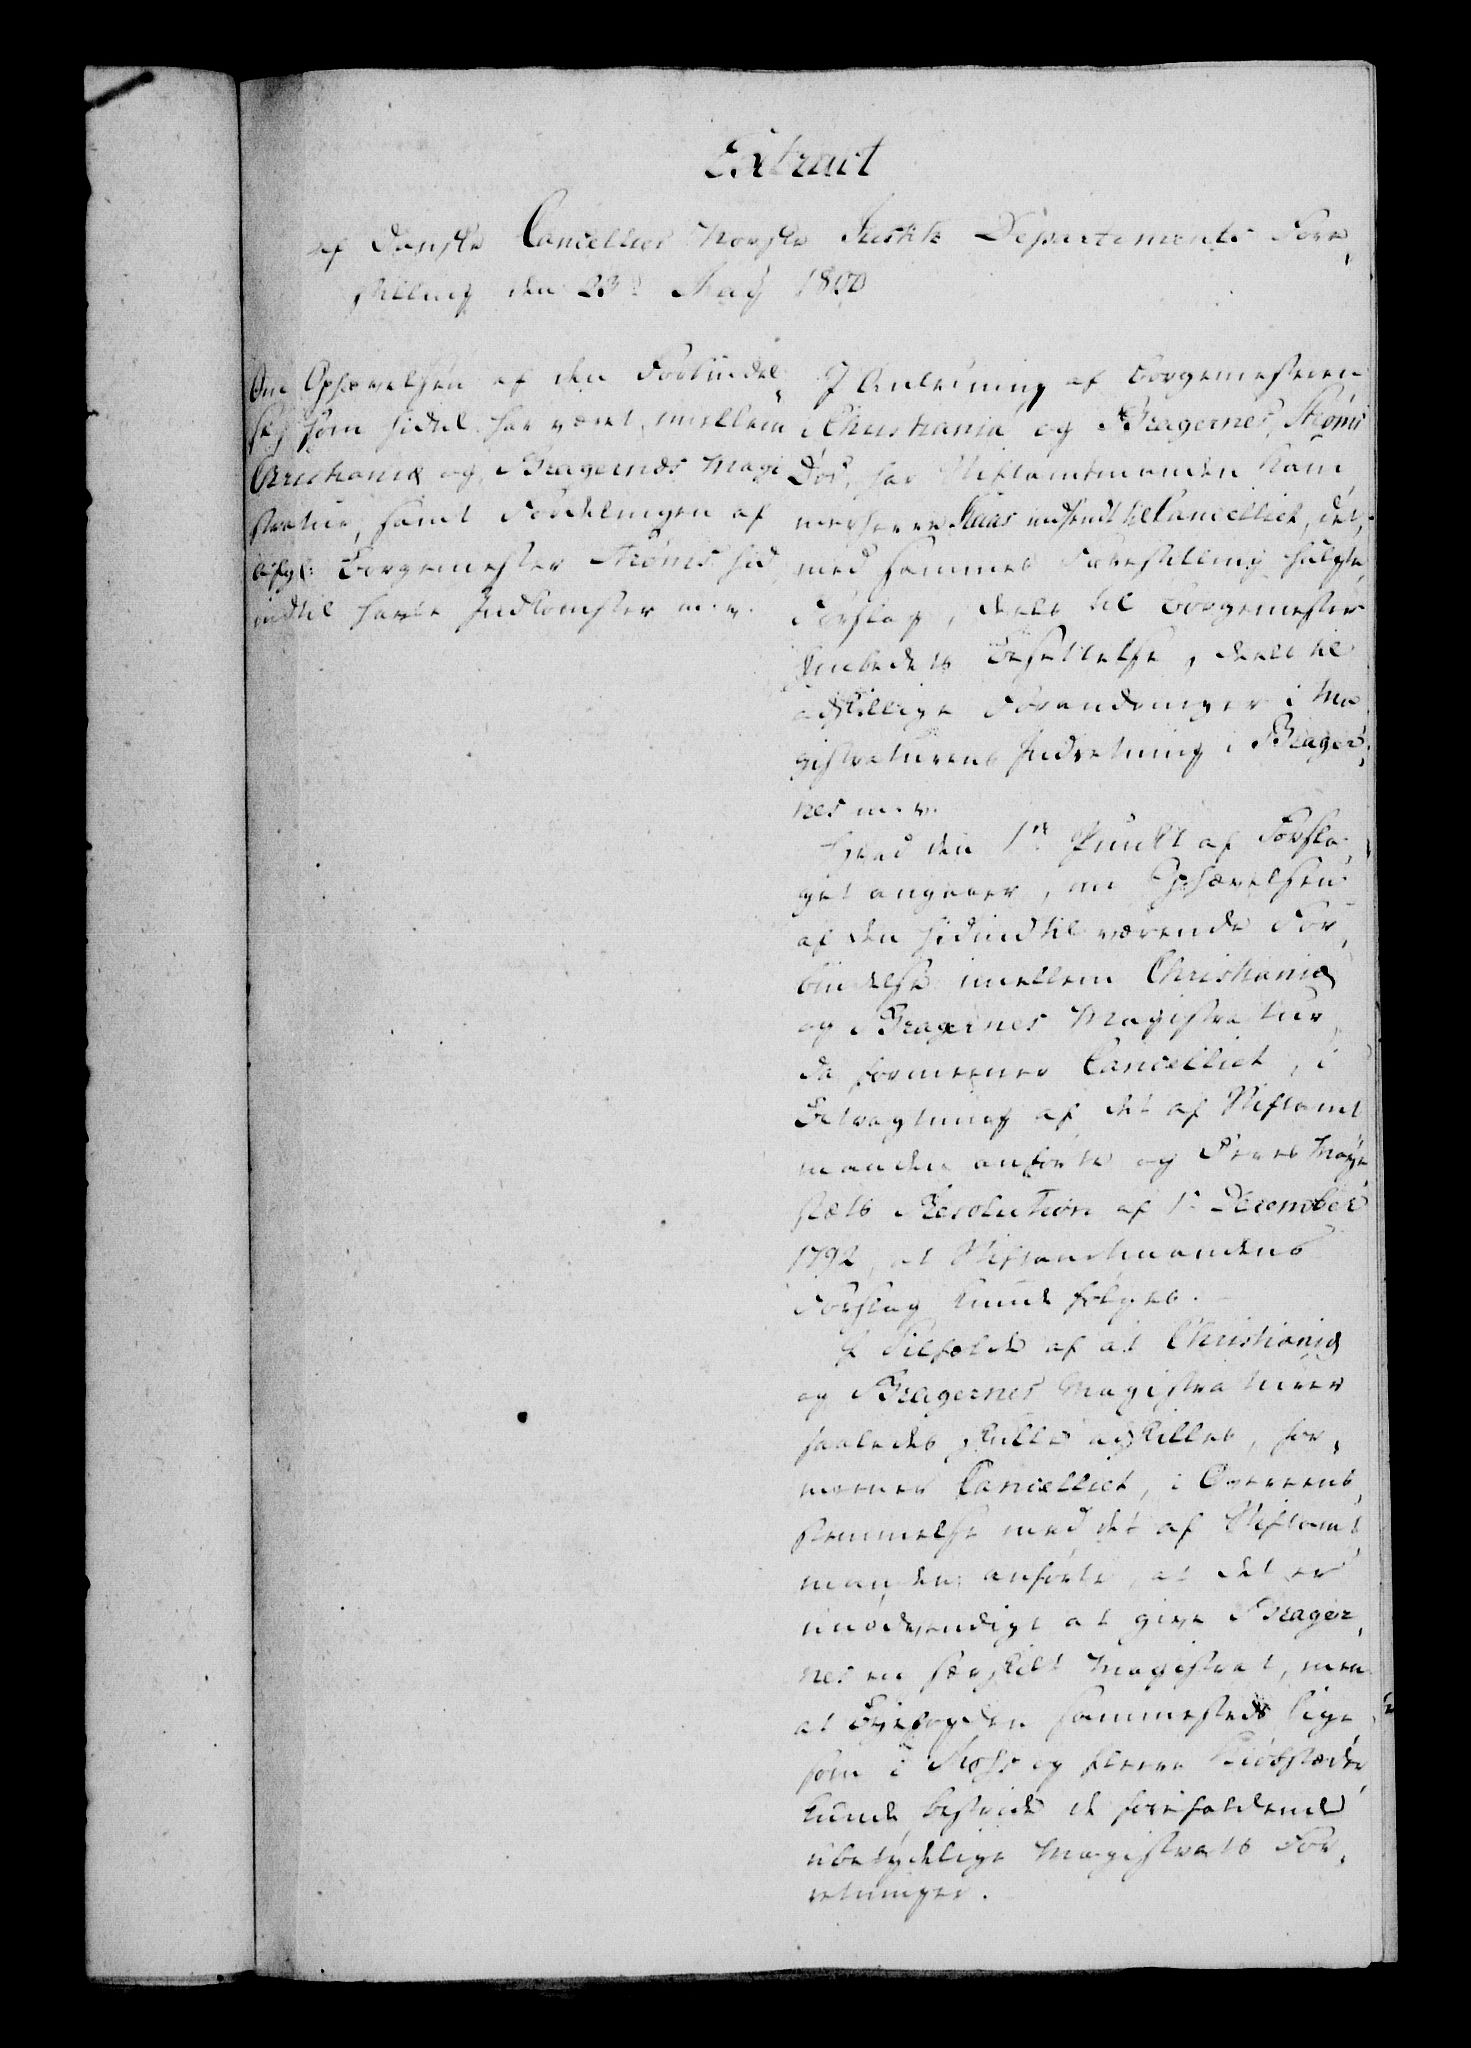 Extract
af Danske Cancellies Norske Justits Departements Fore,
stilling den 23de May 1800
Om Ophævelsen af den Forbindel,
se, som hidtil har været imellem
Christiania og Bragernæs Magi
stratur, samt Fordelingen af
afg: Borgemester Strøms hid
indtil havte Indkomster m. v.
I Anledning af Borgemesteren
i Christiania og Bragernes, Strøms
Død, har Stiftamtmanden Kam
merherre Kaas indsendt til Cancelliet, det,
med hammed Forestilling fulgte
Forslag, deels til Borgemester
Embedets Besettelse, deels til
adskillige Forandringer i Ma
gistraturens Indretning i Brager,
nes m. v.
Hvad den 1te Punkt af Forsla,
get angaaer, om Ophævelsen
af den hidindtil værende For,
bindelse imellem Christiania
og Bragernes Magistratur,
da formeener Cancelliet, i
Betragtning af det af Stiftamt
manden anførte og Deres Maye
stæts Resolution af 1te December
1792, at Stiftamtmandens
Forslag kunde følges.
I Tilfælde af at Christiania
og Bragernes Magistraturer
saaledes skulle adskilles, for,
meener Cancelliet, i Overeens,
stemmelse med det af Stiftamt,
manden anførte, at det er
unødvendigt at give Brager,
nes en særskilt Magistrat, men
at Byefogden sammesteds lige
som i Moss og fleere Kiøbstæder,
kunde bestride de forefaldende
ubetydelige Magistrats For,
retninger.